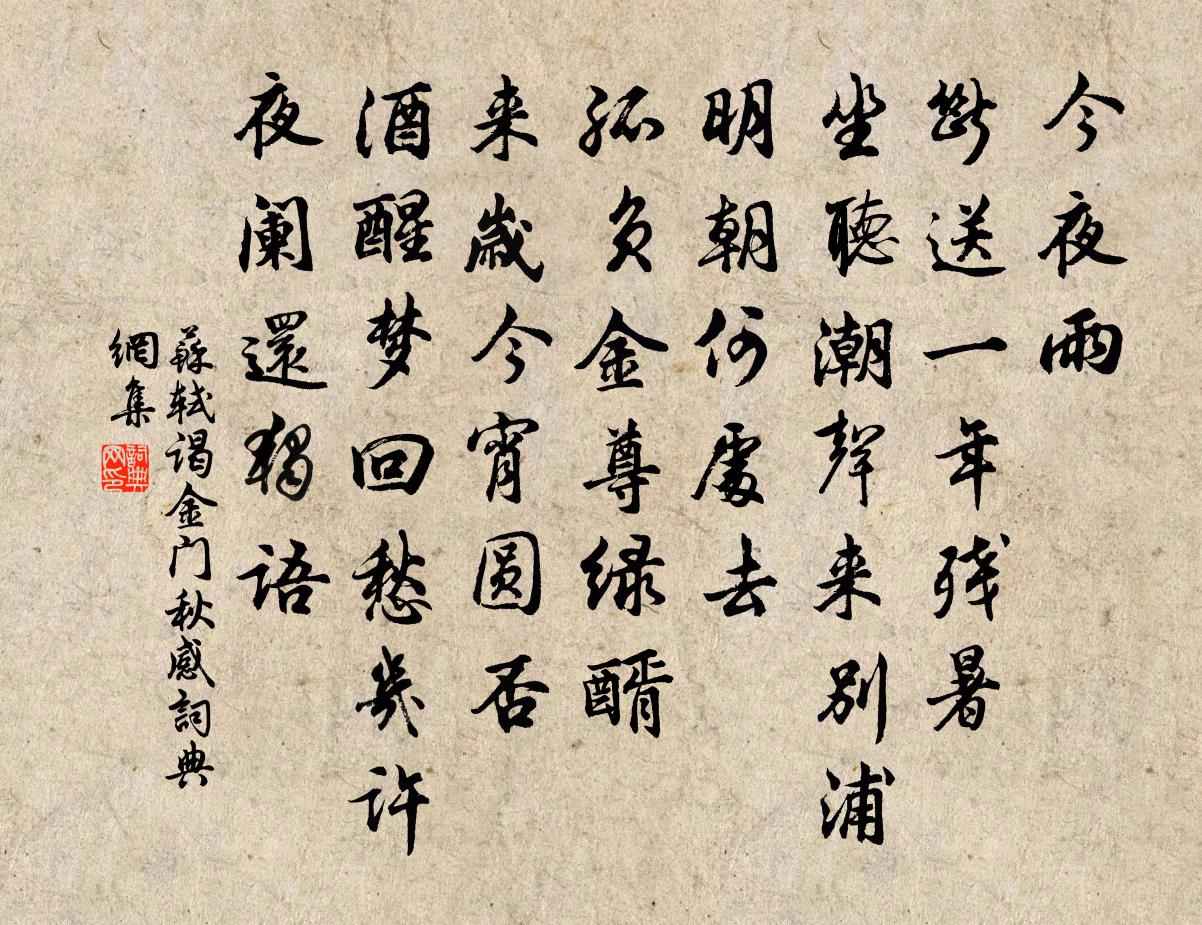 今夜雨
断送一年残暑
坐聽潮聲来别浦
明朝何處去
孤负金尊绿醑
来歲今宵圆否
酒醒梦回愁幾许
夜阑還獨語
蘇轼谒金门秋感詞典
網集
詞典网印